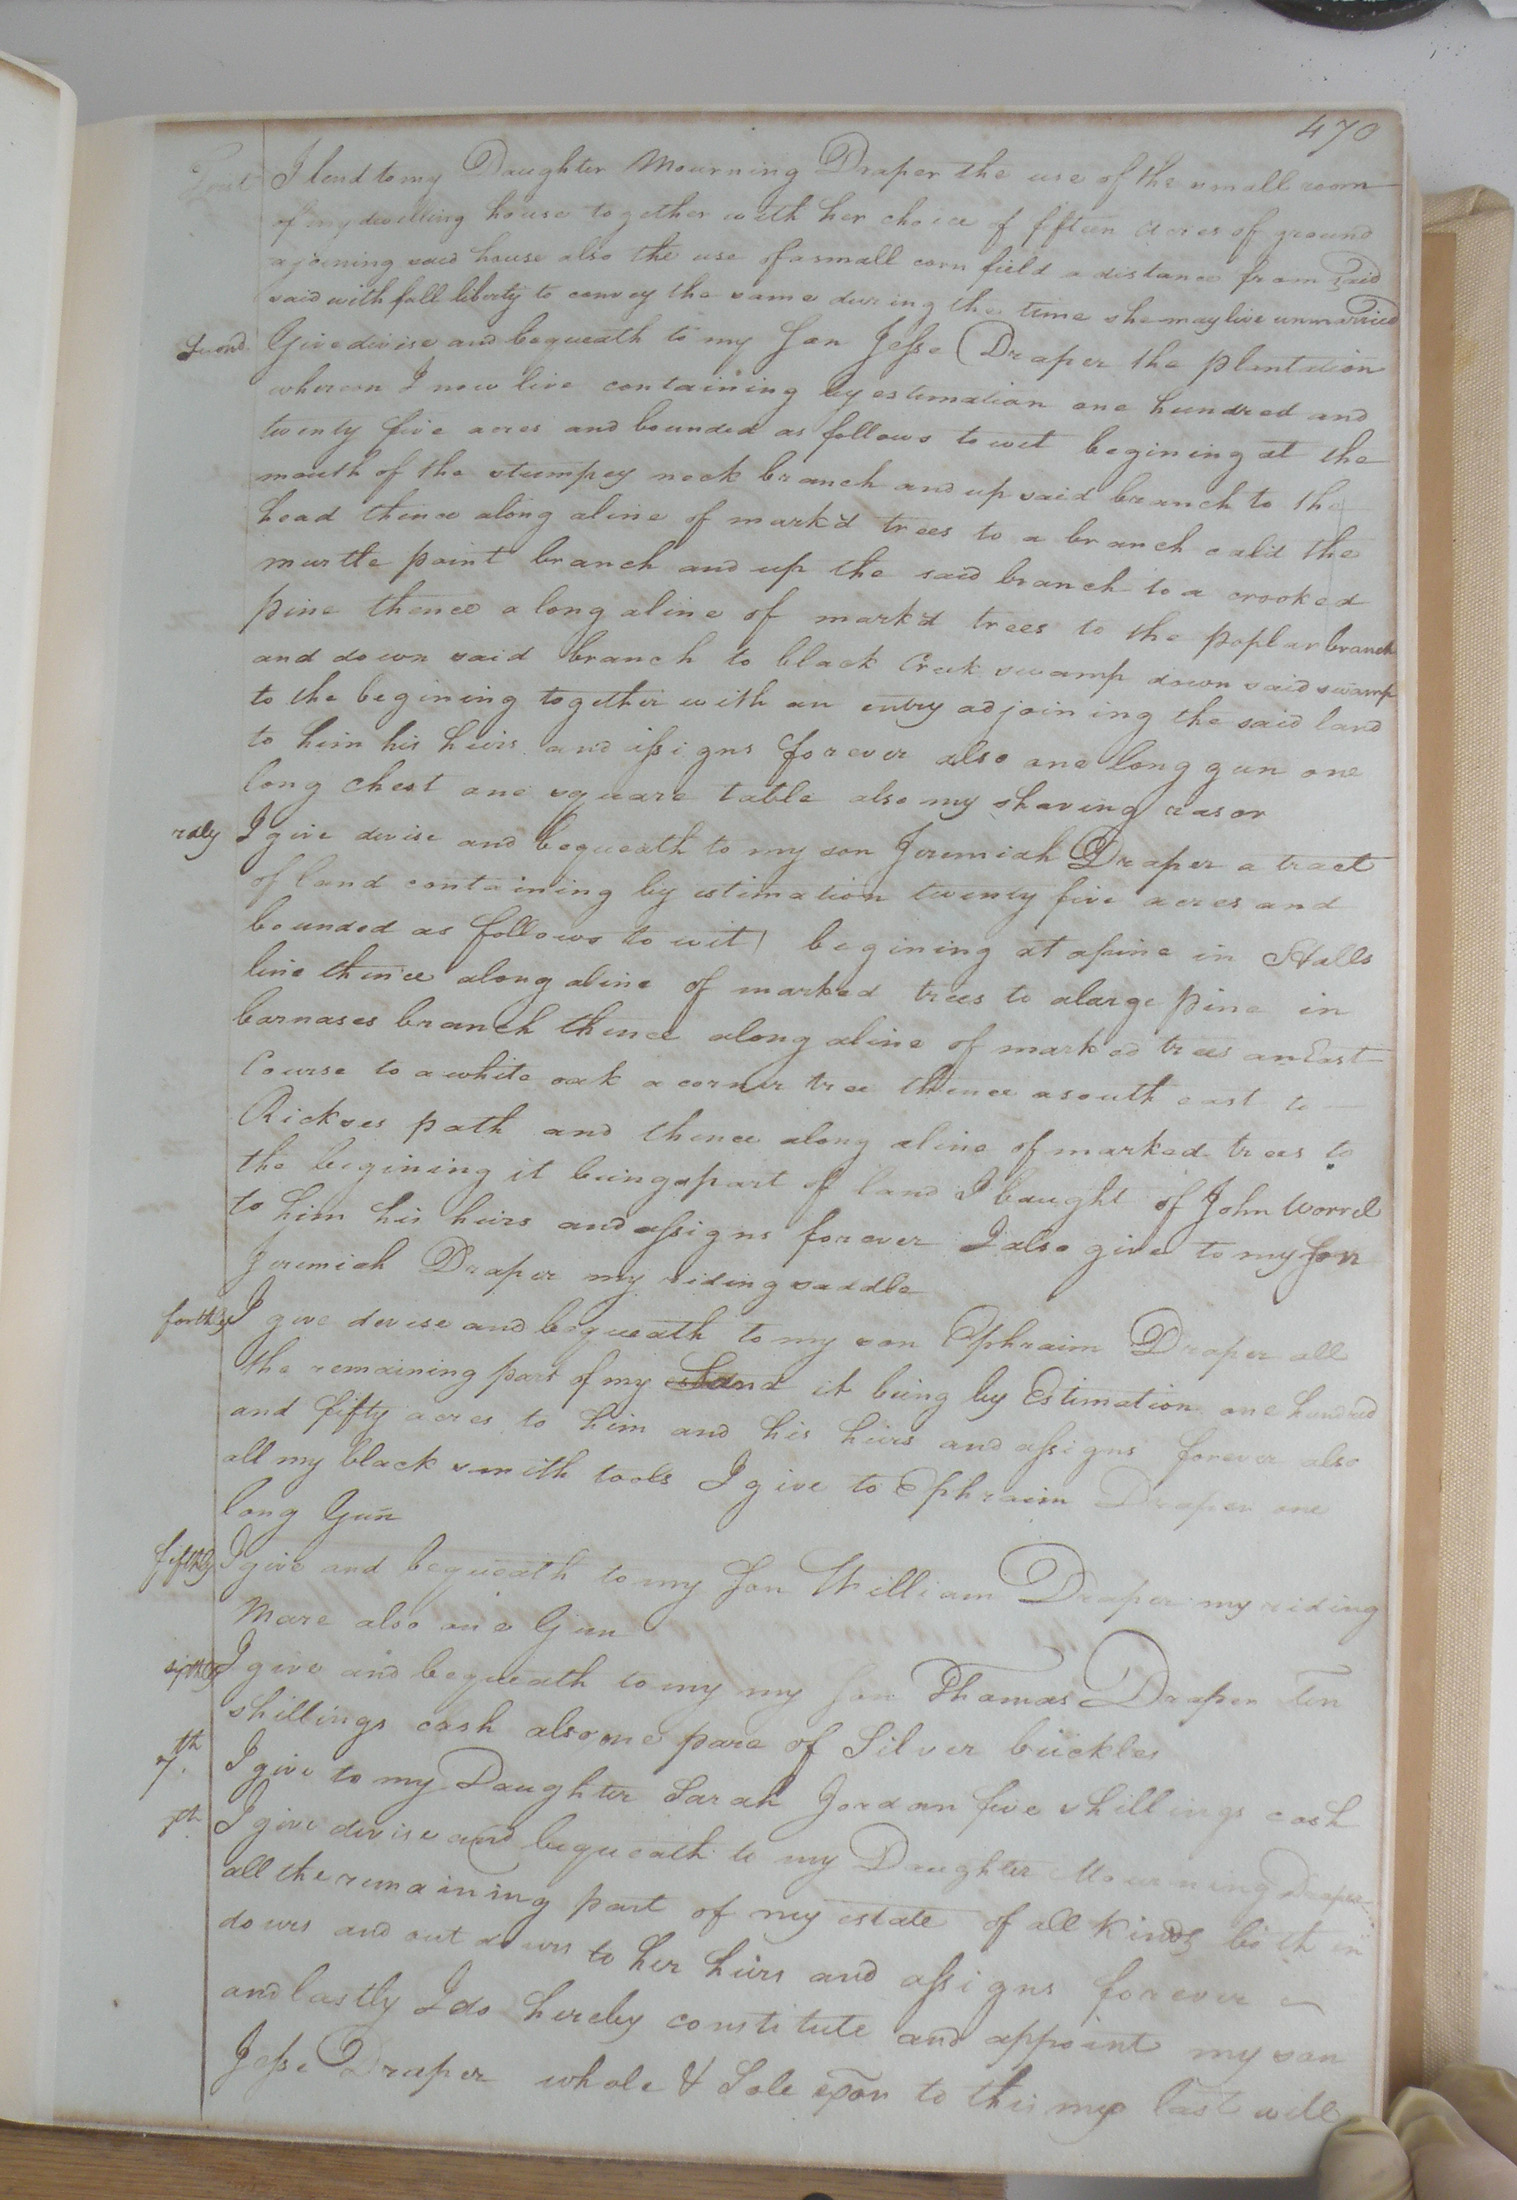 470
I lend to my Daughter Mourning Draper the use of the small room
of my dwelling house together with her choice of fifteen acres of ground
ajoining said house also the use of a small corn field a distance from said
said with full liberty to convey the same during the time she may live unmarried
Second Give devise and bequeath to my Son Jesse Draper the plantation
whereon I now live containing by estimation one hundred and
twenty five acres and bounded as follows to wit begining at the
mouth of the stumpey neck branch and up said branch to the
head thence along a line of mark'd trees to a branch calld the
murtle point branch and up the said branch to a crooked
pine thence along a line of mark'd trees to the poplar branch
and down said branch to black Creek swamp down said swamp
to the begining together with an entry adjoining the said land
to him his heirs and assigns forever also one long gun one
long chest one square table also my shaving rasor
rdly I give devise and bequeath to my son Jeremiah Draper a tract
of land containing by estimation twenty five acres and
bounded as follows to wit begining at a pine in Stalls
line thence along a line of marked trees to a large pine in
barnases branch thence along a line of marked trees an East
Course to a white oak a corner tree thence a south east to
Rickses path and thence along a line of marked trees to
the begining it being a part of land I baught of John Worrel
to him his heirs and assigns forever I also give to my Son
Jeremiah Draper my riding saddle
forthly I give devise and bequeath to my son Ephraim Draper all
the remaining part of my Land it being by Estimation one hundred
and fifty acres to him and his heirs and assigns forever also
all my black smith tools I give to Ephraim Draper one
long Gun
fifthly I give and bequeath to my Son William Draper my riding
Mare also one Gun
sixthly I give and bequeath to my my Son Thomas Draper Ten
shillings cash also one pare of Silver buckles
7th. I give to my Daughter Sarah Jordan five shillings cash
I give devise and bequeath to my Daughter Mourning Draper
all the remaining part of my estate of all Kinds both in
dours and out dours to her heirs and assigns forever
and lastly I do hereby constitute and appoint my son
Jesse Draper whole & Sole exor to this my last will